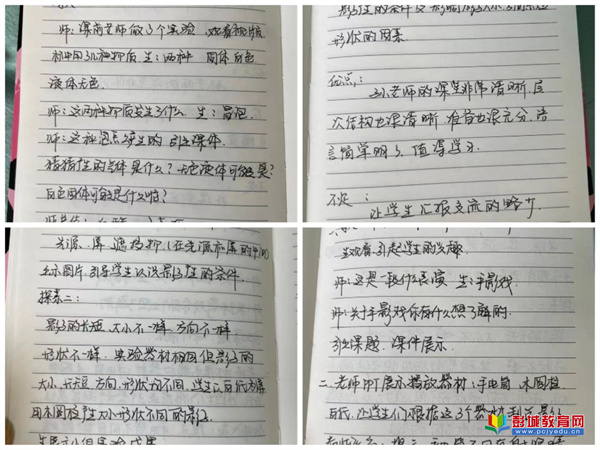 师：课前老师做了3个实验 观看视频
和中用了几种物质 生：两种 固体 白色
液体 无色
师：这两种物质发生了什么 生：冒泡
师：这种泡点产生的 引出课体
猜猜生的气体是什么？无色液体可能是？
白色固体可能是什么呢？
形状的因素
优点：
孙老师的课堂非常清晰，层
次结构也课清晰 准备也很充分，语
言简单明了，值得学习
不足：
让学生汇报交流的略少
光源、屏、遮挡物（在光源和屏的中间）
出示图片，引导学生认识影子产生的条件
探索二：
影子的长短、大小不一样，方向不一样
形状不一样，实验器材相同但影子的
大小、长短、方向、形状为何不同，学生以白纸为屏
用木圆柱产生大小形状不同的影子
生展示小组实验成果
生观看，引起学生的兴趣
师：这是一段什么表演 生：手影戏
师：关于手影戏你有什么想了解的
引出课题，课件展示
二、老师PPT展示播放器材：手电筒 木圆柱
白纸，让学生们根据这3个器材制造影子
彭城教育网
www.pcjyedu.cn